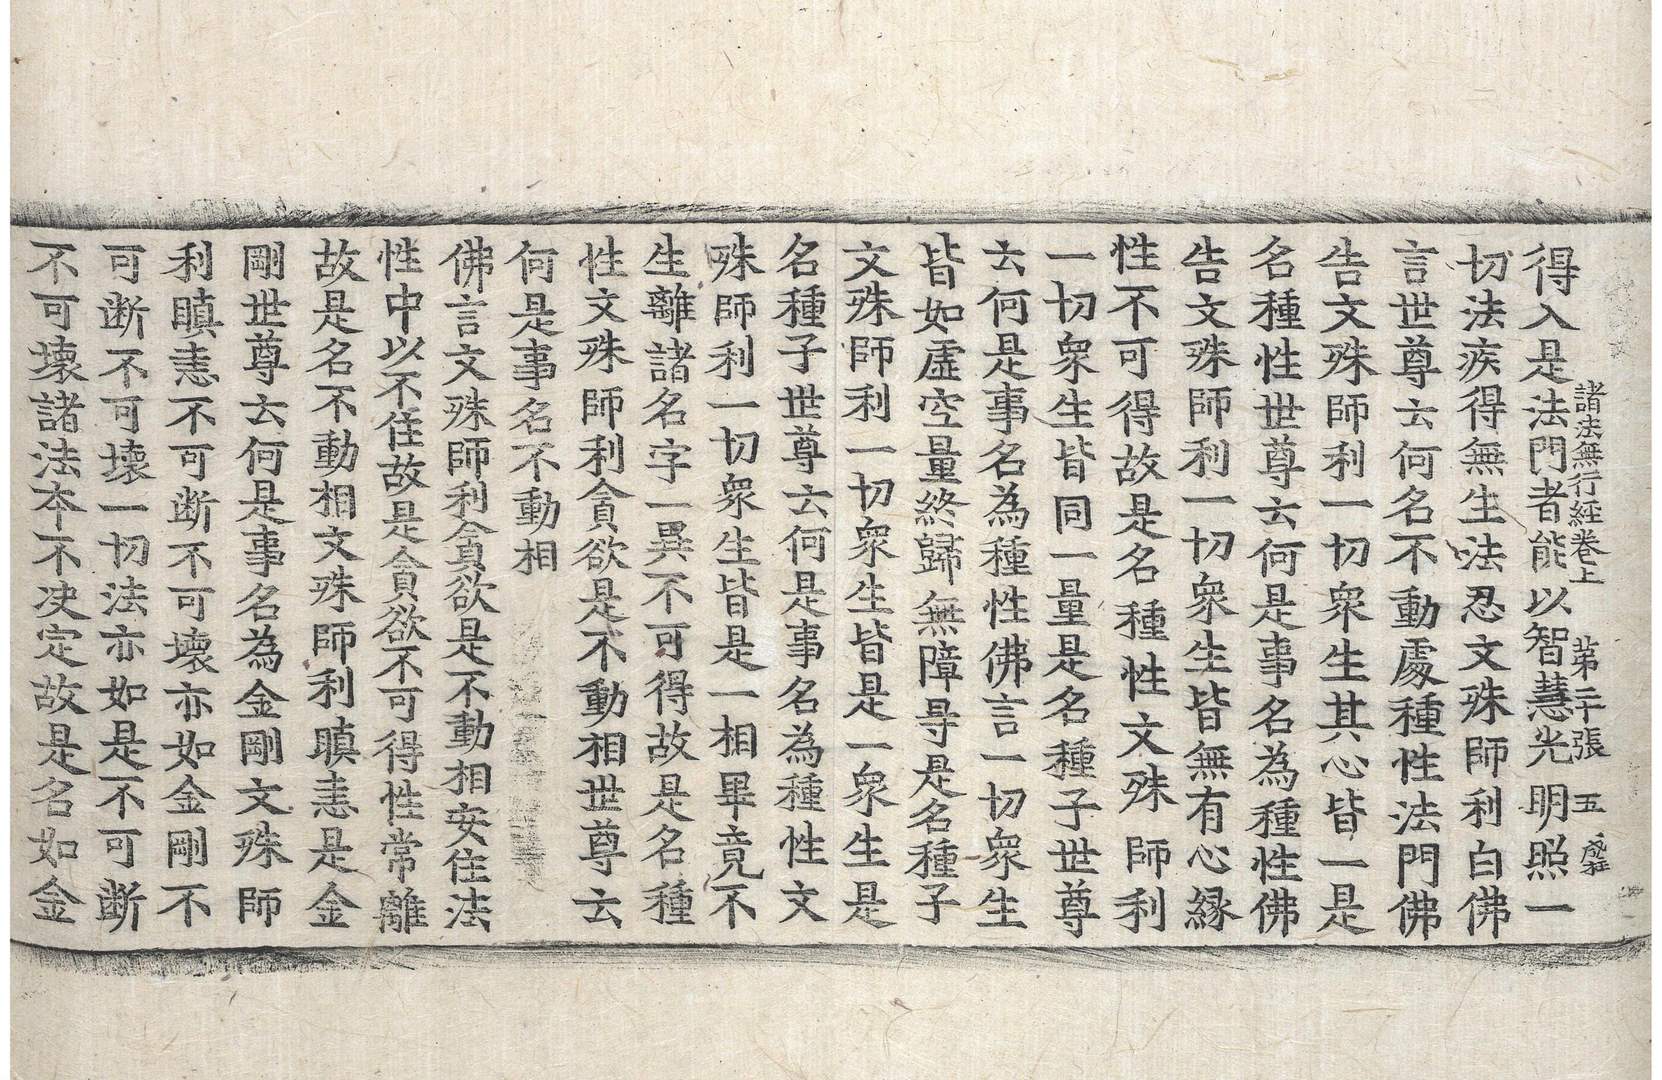 諸法無行経卷上 第二十張 五
得入是法門者能以智慧光明照一
切法疾得無生法忍文殊師利白佛
言世尊云何名不動處種性法門佛
告文殊師利一切衆生其心皆一是
名種性世尊云何是事名為種性佛
告文殊師利一切衆生皆無有心緣
性不可得故是名種性文殊師利
一切衆生皆同一量是名種子世尊
云何是事名為種性佛言一切衆生
皆如虛空量終歸無障㝵是名種子
文殊師利一切衆生皆是一衆生是
名種子世尊云何是事名為種性文
殊師利一切衆生皆是一相畢竟不
生離諸名字一異不可得故是名種
性文殊師利貪欲是不動相世尊云
何是事名不動相
佛言文殊師利貪欲是不動相安住法
性中以不住故是貪欲不可得性常離
故是名不動相文殊師利瞋恚是金
剛世尊云何是事名為金剛文殊師
利瞋恚不可斷不可壞亦如金剛不
可断不可壞一切法亦如是不可断
不可壞諸法本不决定故是名如金